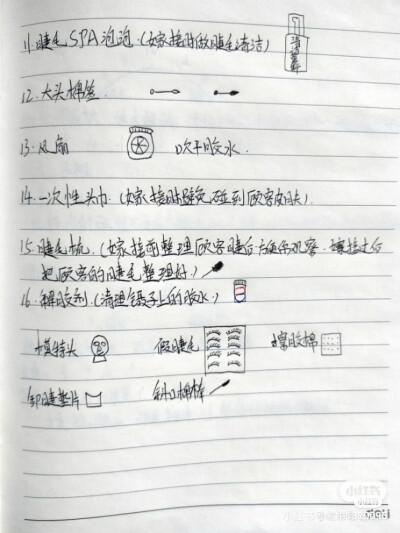 11. 睫毛SPA泡泡.(嫁接时做睫毛清洁)
清洁
12. 大头棉签
13. 风扇 吹干胶水.
14. 一次性头巾.(嫁接时避免碰到顾客皮肤).
15. 睫毛梳.(嫁接前整理顾客睫毛方便观察.嫁接过后
把顾客的睫毛整理好.)
16. 解胶剂(清理镊子上的胶水.)
模特头 假睫毛 擦胶棉
卸睫垫片 斜口棉棒
小红书
deli